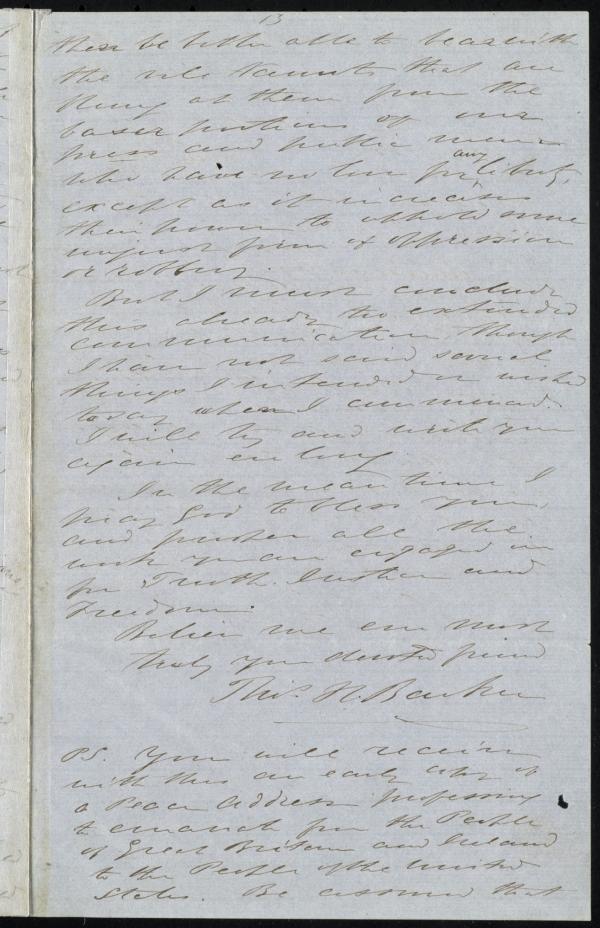 13
then be better able to bear with
the vile taunts that are
flung at them from the
baser portions of our
press and public men
who have no love for any liberty,
except as it increases
their power to uphold some
unjust form of oppression
or robbery.
But I must conclude
this already too extended
communication, though
I have not said several
things I intended or wished
to say when I commenced.
I will try and write you
again ere long
In the mean time I
pray God to bless you,
and prosper all the
work you are engaged in
for Truth, Justice and
Freedom.
Believe me ever most
truly your devoted friend
Thos. H. Barker
PS. You will receive
with this an early copy of
a Peace Address professing
to emanate from the People
of Great Britain and Ireland
to the People of the United
States. Be assured that